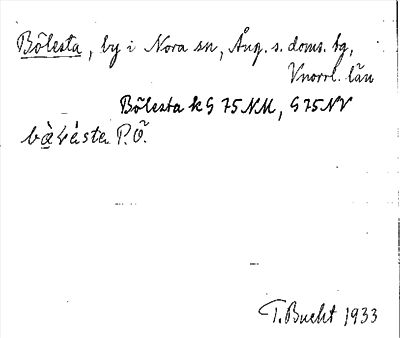 Bölesta, by i Nora sn, Ång. s. doms. bg,
Vnorrl. län
Bölesta k G 75 NM, G 75 NV
P.Ö.
T. Bucht 1933